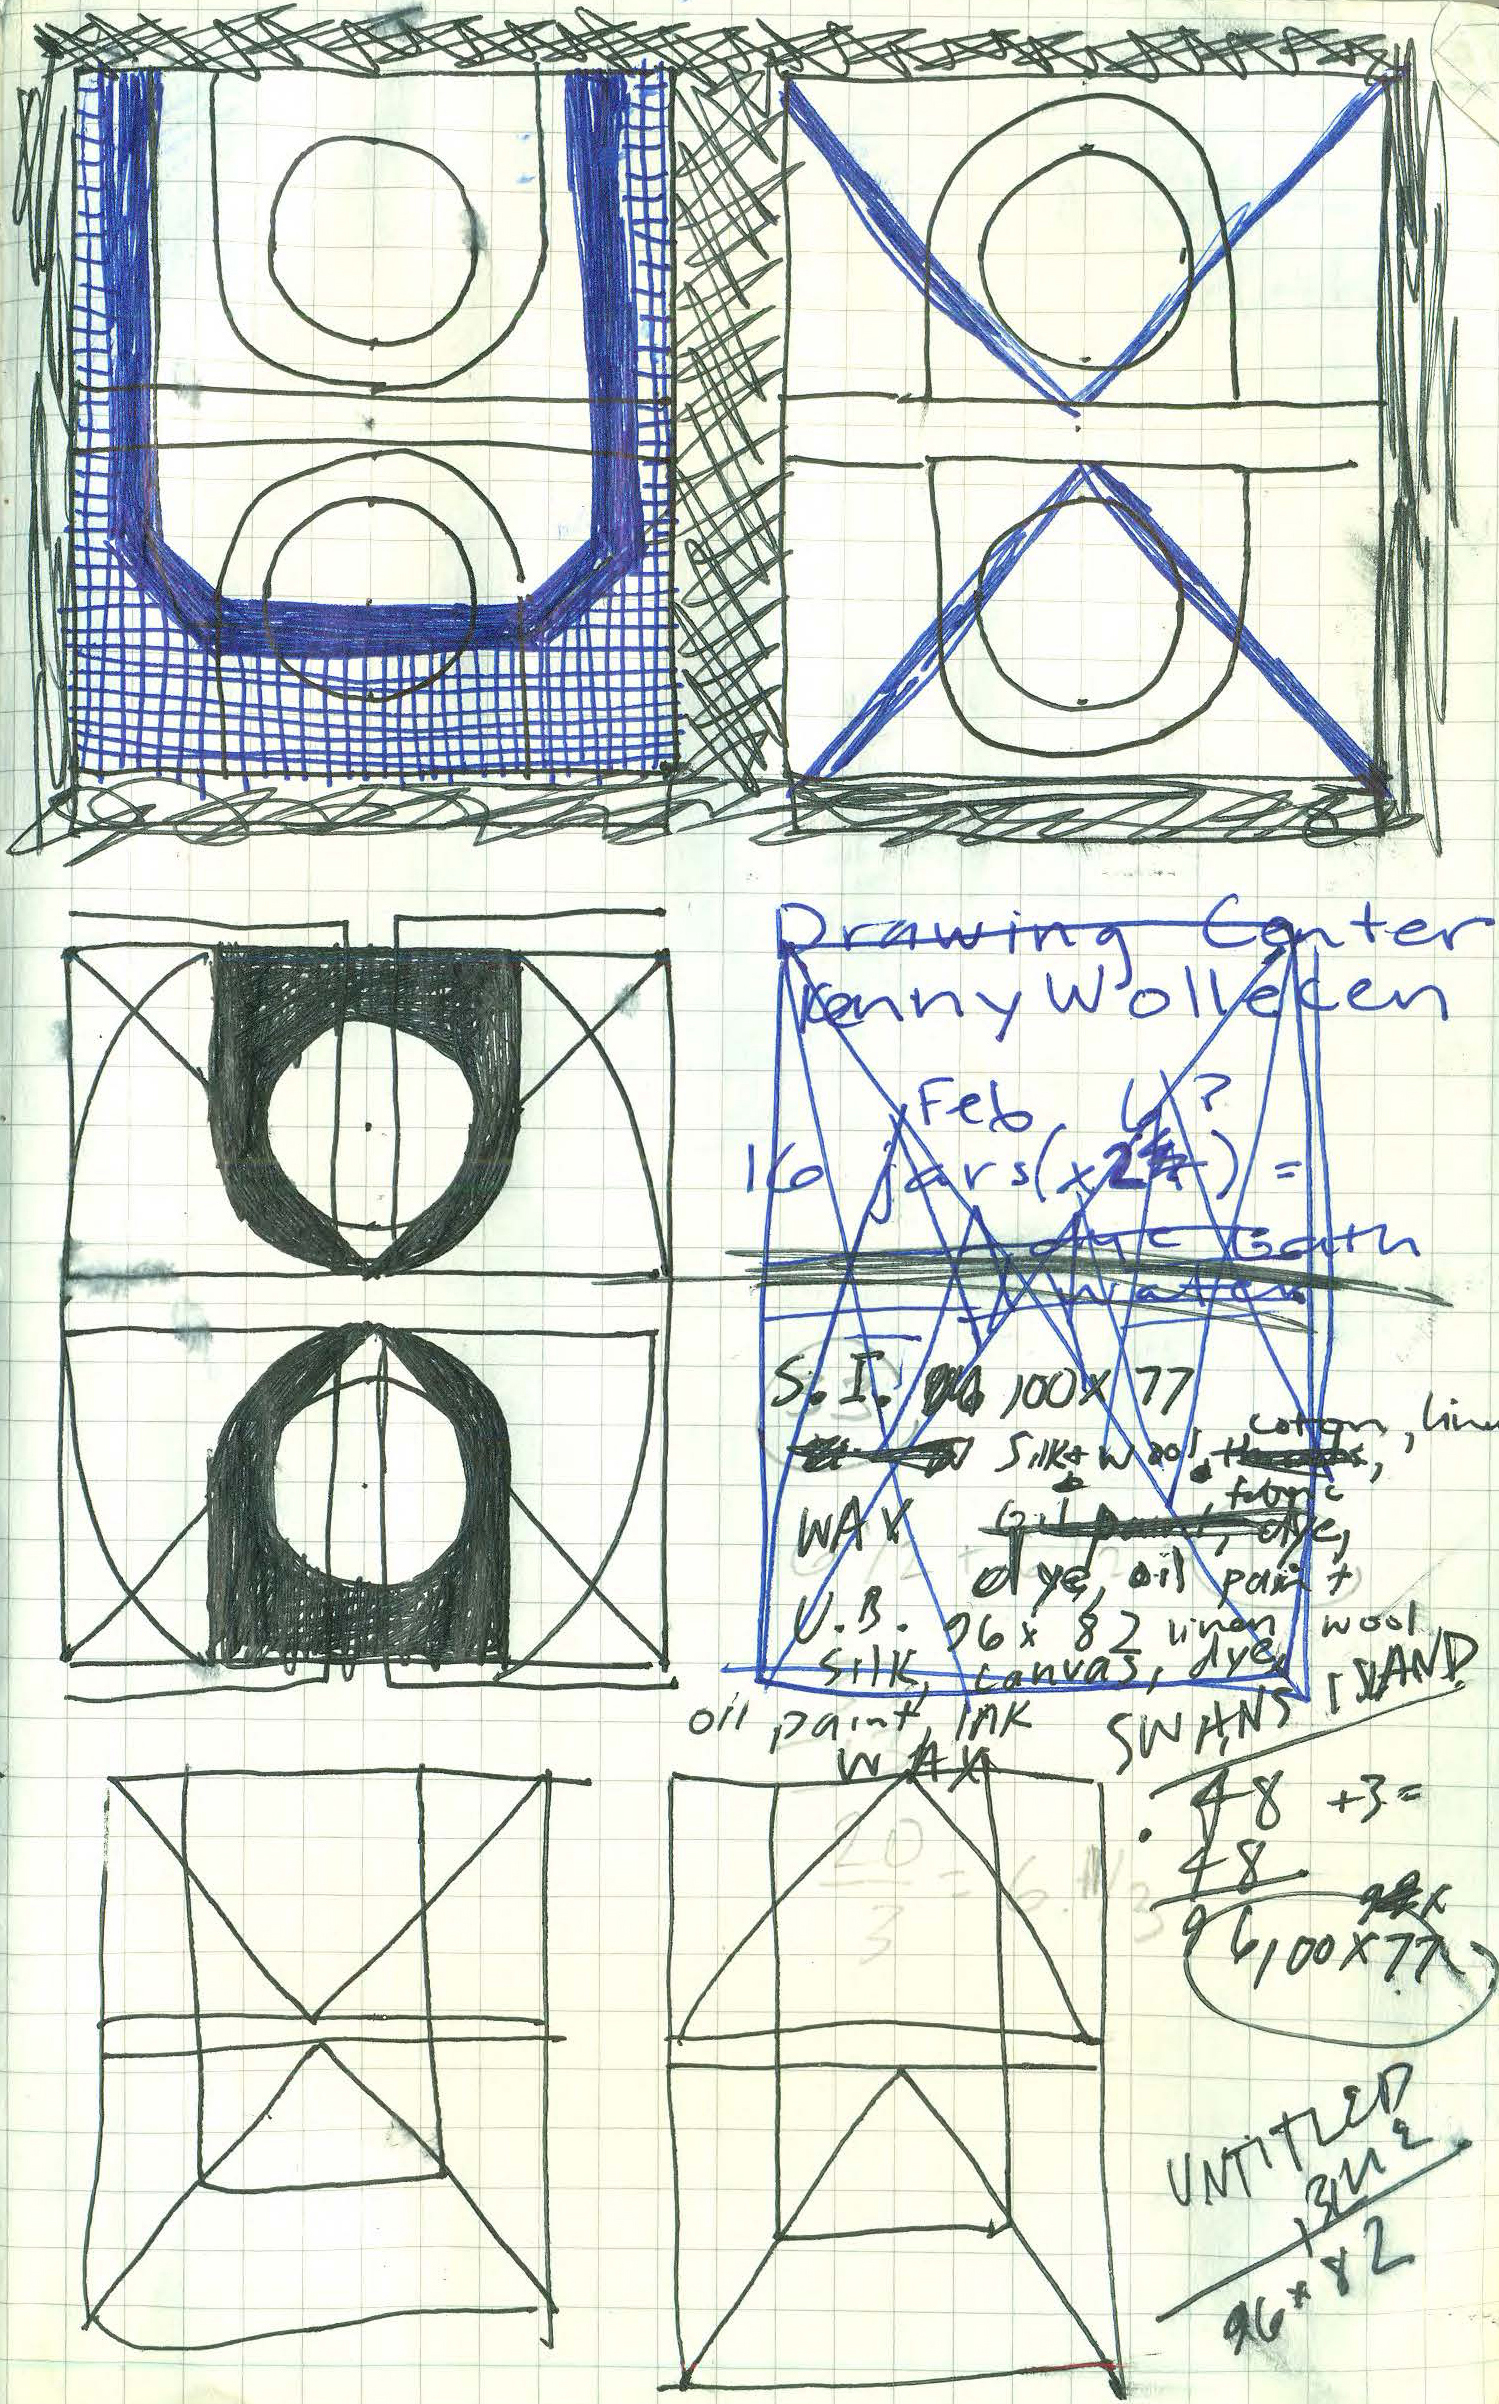 Drawing Center
Kenny Wollesen
Feb 6?
16 jars (x2 ) =
dye Bath
water
S. I. 100 x 77
cotton, linen
silk + wool,
fabric
WAX oil paint, dye,
dye, oil paint
U.B. 96 x 82 linen wool
silk, canvas, dye,
oil paint, INK
WAX
SWANS ISLAND
48 +3=
48
96, 100 x 77
20
3
= 6.
3
UNTITLED
BLUE
96 x 82